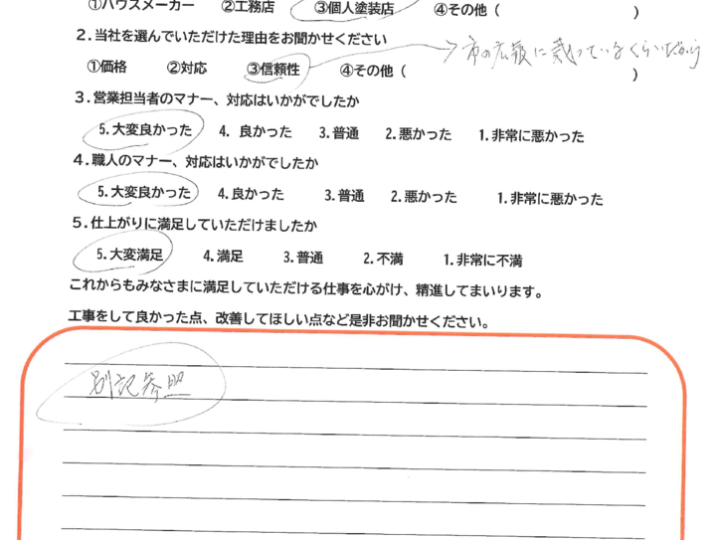 ①ハウスメーカー ②工務店 ③個人塗装店 ④その他( )
2.当社を選んでいただけた理由をお聞かせください
→市の広報に載っているくらいだから
①価格 ②対応 ③信頼性 ④その他( )
3.営業担当者のマナー、対応はいかがでしたか
5.大変良かった 4.良かった 3.普通 2.悪かった 1.非常に悪かった
4.職人のマナー、対応はいかがでしたか
5.大変良かった 4.良かった 3.普通 2.悪かった 1.非常に悪かった
5.仕上がりに満足していただけましたか
5.大変満足 4.満足 3.普通 2.不満 1.非常に不満
これからもみなさまに満足していただける仕事を心がけ、精進してまいります。
工事をして良かった点、改善してほしい点など是非お聞かせください。
別記参照